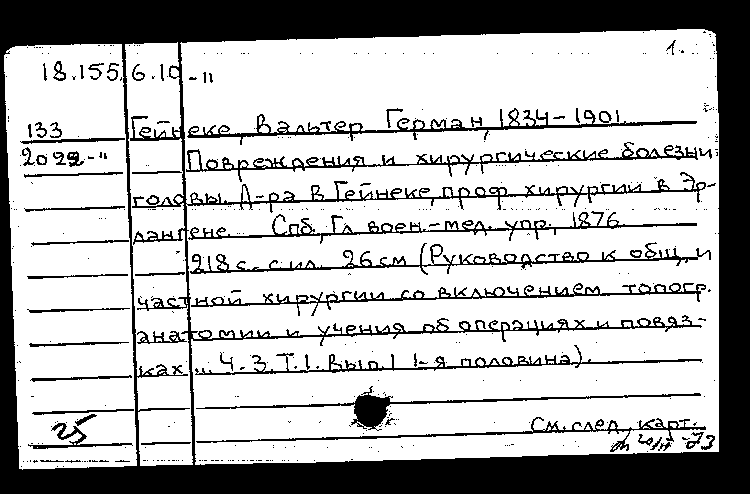 1.
18.155.6.10-"
133 Гейнеке, Вальтер Герман, 1834-1901.
2092-" Повреждения и хирургические болезни
головы. Д-ра В Гейнеке, проф. хирургии в Эр-
лангене. Спб., Гл воен.-мед. упр., 1876
218 с. с ил. 26 см (Руководство к общ. и
частной хирургии со включением топогр.
анатомии и учения об операциях и повяз-
ках ... Ч. 3. Т. 1. Вып. 1 1-я половина).
25 См. след. карт.